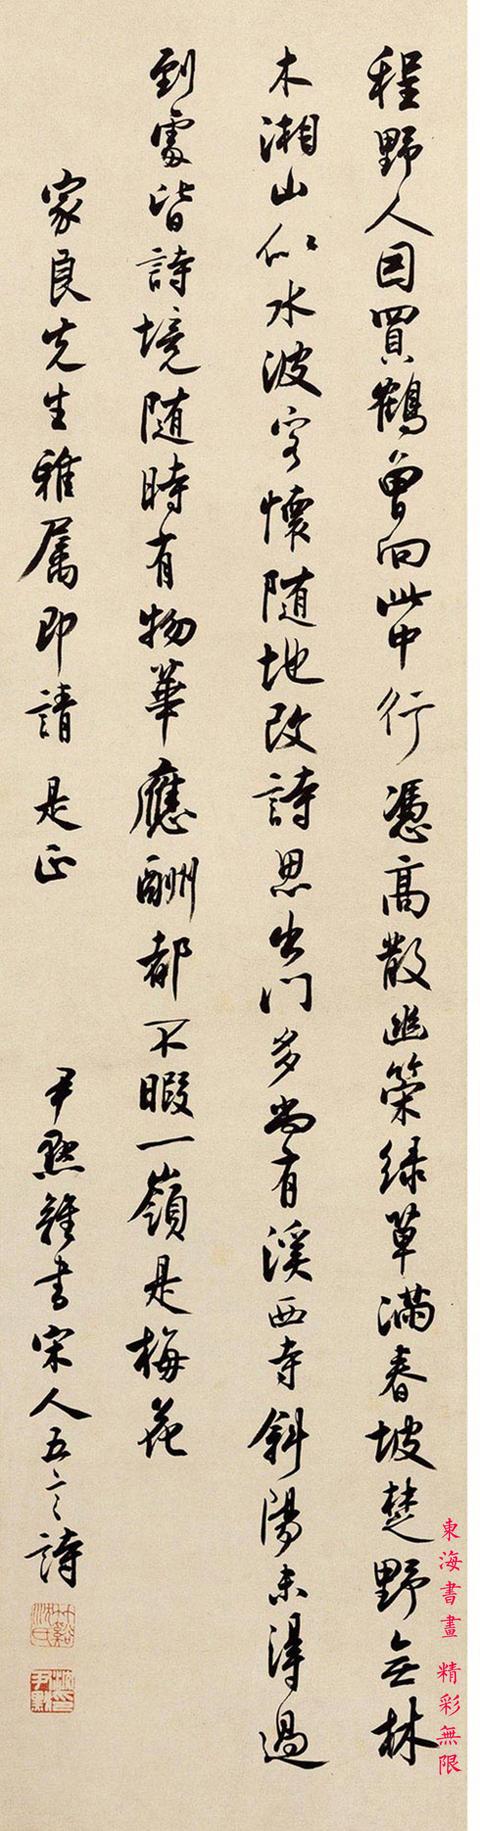 程野人因買鶴曾向此中行憑高散幽策綠草滿春坡楚野無林
木湘山似水波客懷隨地改詩思出門多尚有溪西寺斜陽未得過
到處皆詩境隨時有物華應酬都不暇一嶺是梅花
家良先生雅屬即請 是正
尹默雜書宋人五言詩
竹谿沈氏
尹默
東海書畫 精彩無限